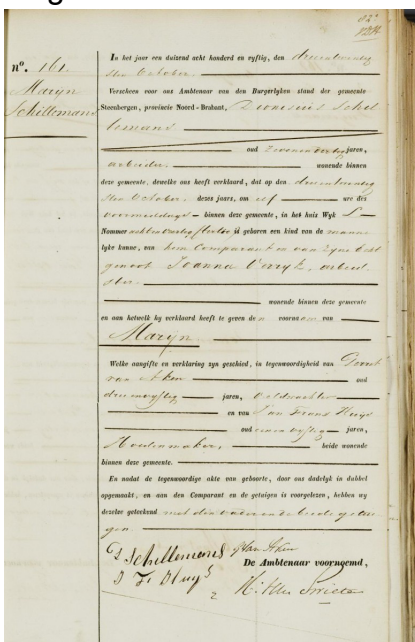 n°. 161.
Maryn
Schillemans
In het jaar een duizend acht honderd en vyftig, den drieentwintig
sten October.
Verscheen voor ons Ambtenaar van den Burgerlyken stand der gemeente
Steenbergen, provincie Noord-Brabant, Dionisius Schil
lemans
oud zevenendertig jaren,
arbeider. wonende binnen
deze gemeente, dewelke ons heeft verklaard, dat op den drieentwintig
sten October, dezes jaars, om elf ure des
voormiddags binnen deze gemeente, in het huis Wyk
Nommer is geboren een kind van de manne
lyke kunne, van hem Comparant en van zyne Echt
genoot Joanna Verryk, arbeid
ster.
wonende binnen deze gemeente
en aan hetwelk hy verklaard heeft te geven den voornaam van
Maryn
Welke aangifte en verklaring zyn geschied, in tegenwoordigheid van Gerrit
van Aken oud
drieenvyftig jaren, Veldwachter
en van Jan Frans Huys
oud eenenvyftig jaren,
Hoedenmaker, beide wonende
binnen deze gemeente.
En nadat de tegenwoordige akte van geboorte, door ons dadelyk in dubbel
opgemaakt, en aan den Comparant en de getuigen is voorgelezen, hebben wy
dezelve geteekend met den vader en de beide getui
gen.
D Schillemans G Van Aken
J F Huys
De Ambtenaar voornoemd,